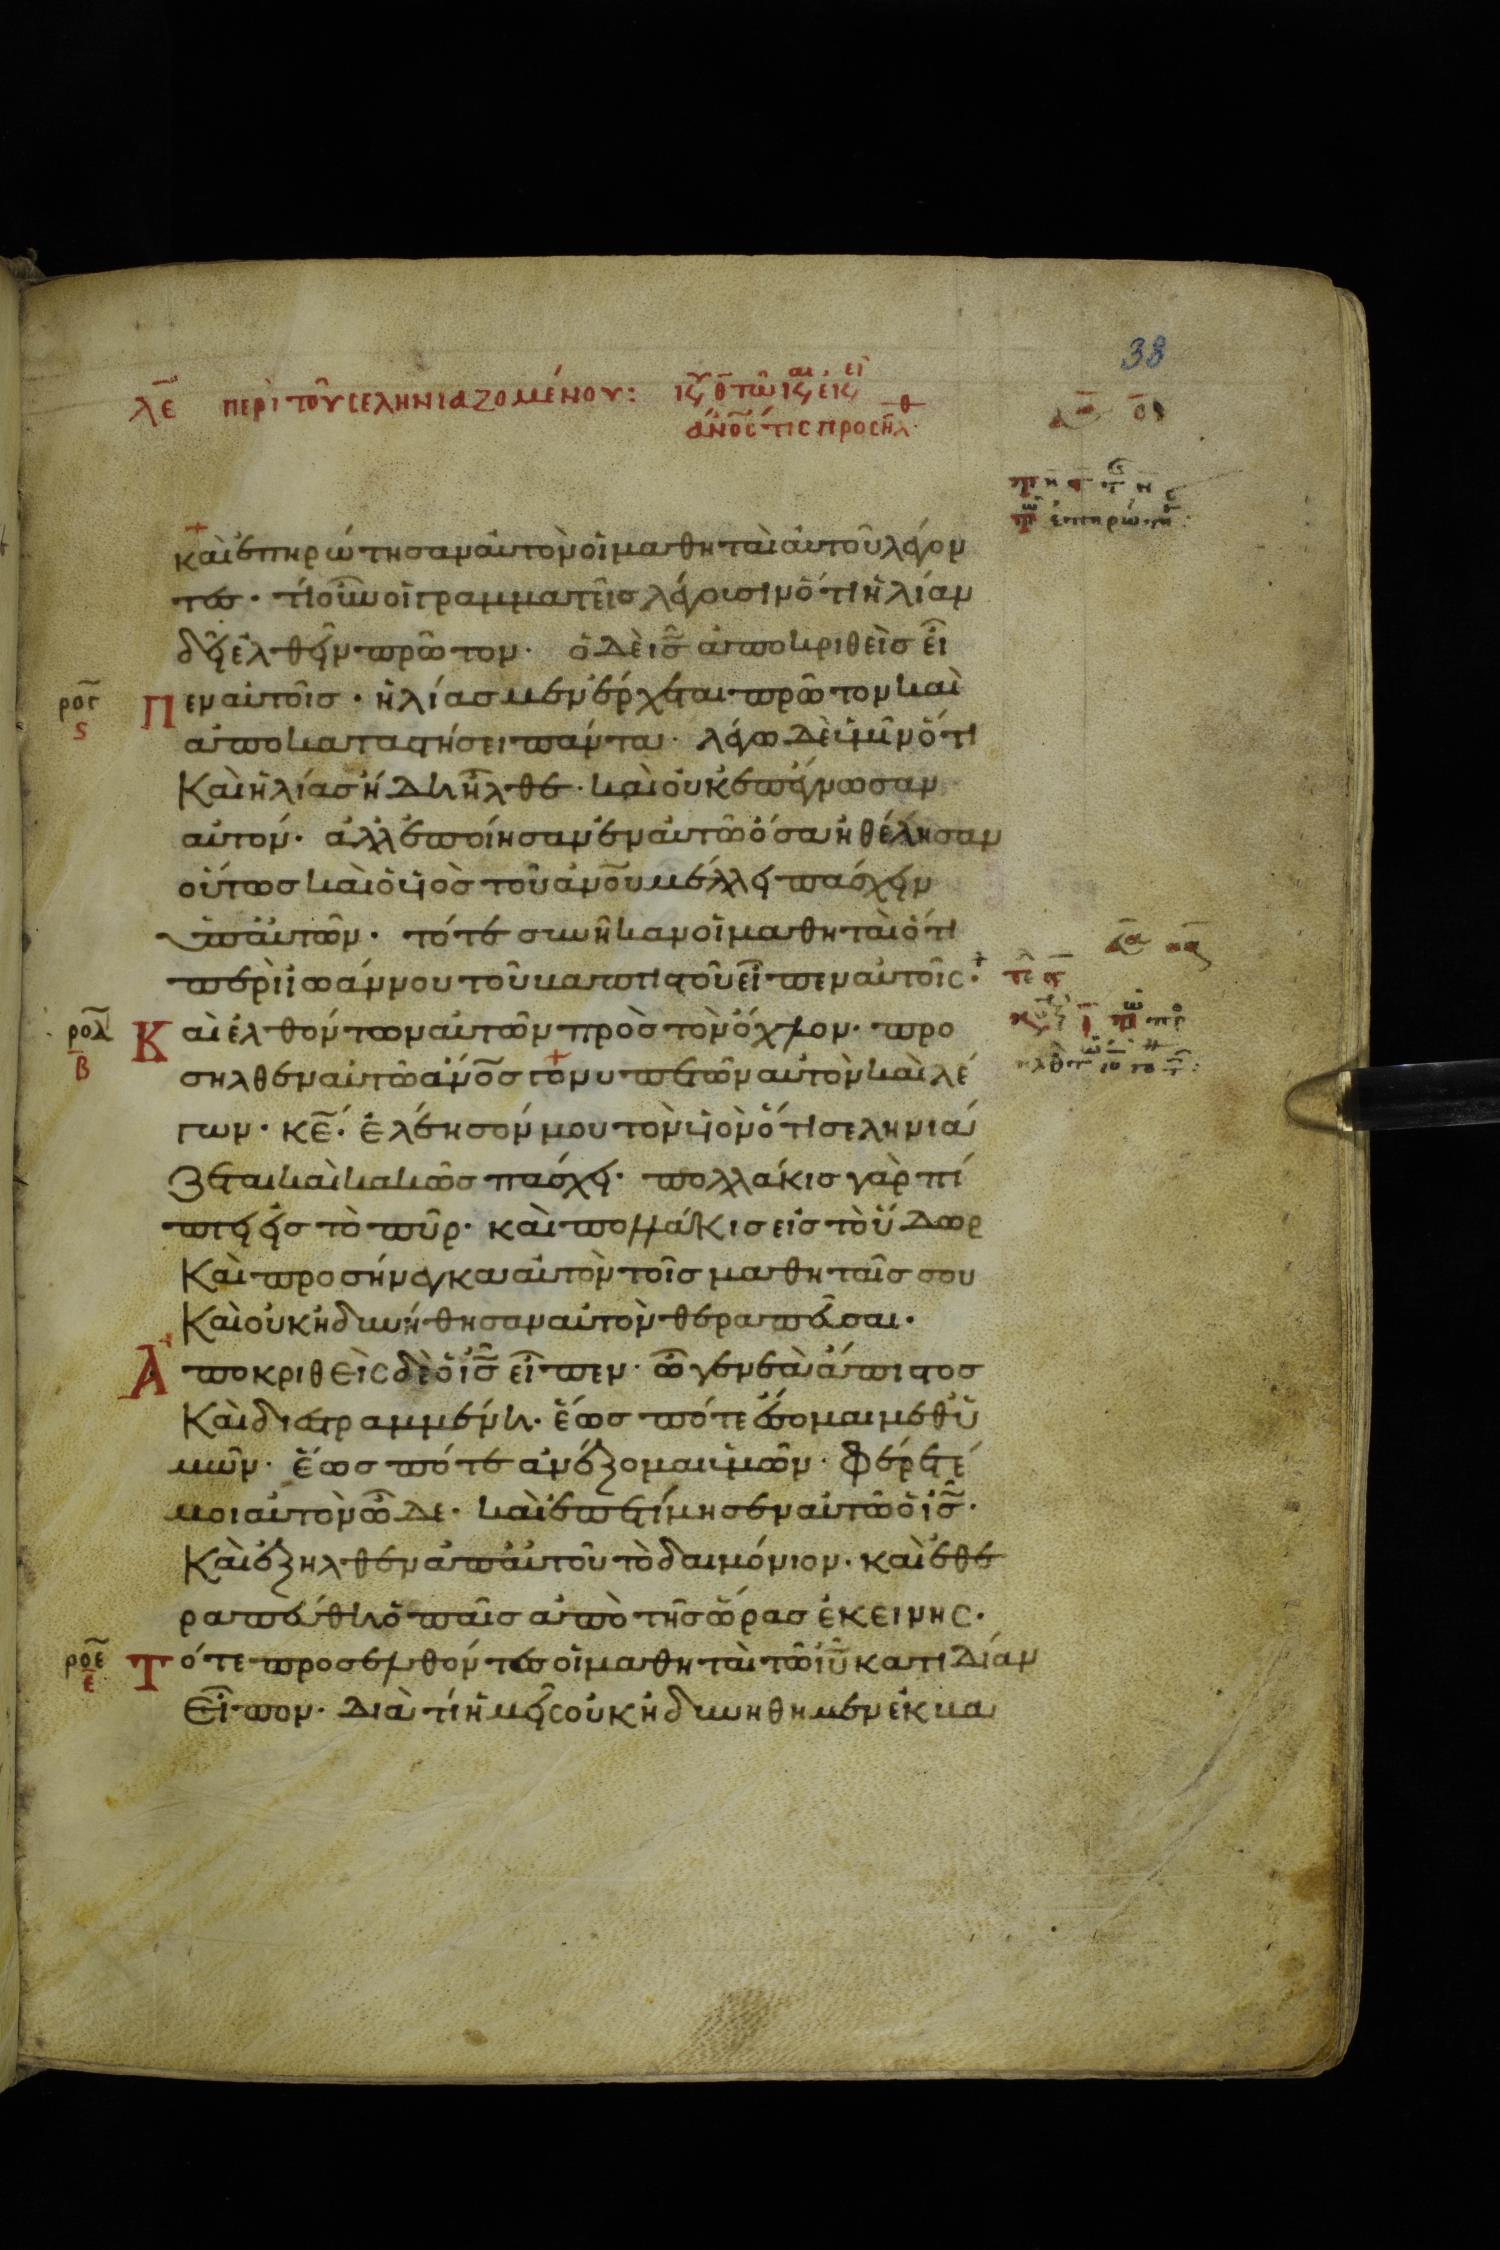 38
λε περὶ τοῦ σεληνιαζομένου:
ἄνος τις προσηλθ
καὶ ἐπηρώτησαν αὐτὸν οἱ μαθηταὶ αὐτοῦ λέγον
τες· τί οὖν οἱ γραμματεῖς λέγουσιν ὅτι ἠλίαν
δεῖ ἐλθεῖν πρῶτον· ὁ δὲ ις ἀποκριθεὶς εἶ
ροϛ ϛ
Πεν αὐτοῖς· ἠλίας μὲν ἔρχεται πρῶτον καὶ
ἀποκαταστήσει πάντα· λέγω δὲ ὑμῖν ὅτι
Καὶ ἠλίας ἤδη ἦλθε· καὶ οὐκ ἐπέγνωσαν
αὐτόν· ἀλλ ἐποίησαν ἐν αὐτῶ ὅσα ἠθέλησαν
οὕτως καὶ ὁ υἱὸς τοῦ ἀνου μέλλει πάσχειν
ὑπ αὐτῶν· τότε συνῆκαν οἱ μαθηταὶ ὅτι
περὶ ἰωάννου τοῦ βαπτιστοῦ εἶπεν αὐτοῖς·
ροδ β
Καὶ ἐλθόντων αὐτῶν πρὸς τὸν ὄχλον· προ
σῆλθεν αὐτῶ ἄνος γονυπετῶν αὐτὸν καὶ λέ
γων· κε· ἐλέησόν μου τὸν υἱὸν ὅτι σεληνιά
ζεται καὶ κακῶς πάσχει· πολλάκις γὰρ πί
πτει εἰς τὸ πῦρ· καὶ πολλάκις εἰς τὸ ὕδωρ
Καὶ προσήνεγκα αὐτὸν τοῖς μαθηταῖς σου
Καὶ οὐκ ἠδυνήθησαν αὐτὸν θεραπεῦσαι·
Ἀποκριθεὶς δὲ ὁ ις εἶπεν· ὦ γενεὰ ἄπιστος
Καὶ διεστραμμένη· ἕως πότε ἔσομαι μεθ ὑ
μῶν· ἕως πότε ἀνέξομαι ὑμῶν· φέρετέ
μοι αὐτὸν ὧδε· καὶ ἐπετίμησεν αὐτῶ ὁ ις·
Καὶ ἐξῆλθεν ἀπ αὐτοῦ τὸ δαιμόνιον· καὶ ἐθε
ραπεύθη ὁ παῖς ἀπὸ τῆς ὥρας ἐκείνης·
ροε ε
Τότε προσελθόντες οἱ μαθηταὶ τῶ ιυ κατιδίαν
Εἶπον· διὰ τί ἡμεῖς οὐκ ἠδυνήθημεν ἐκβα